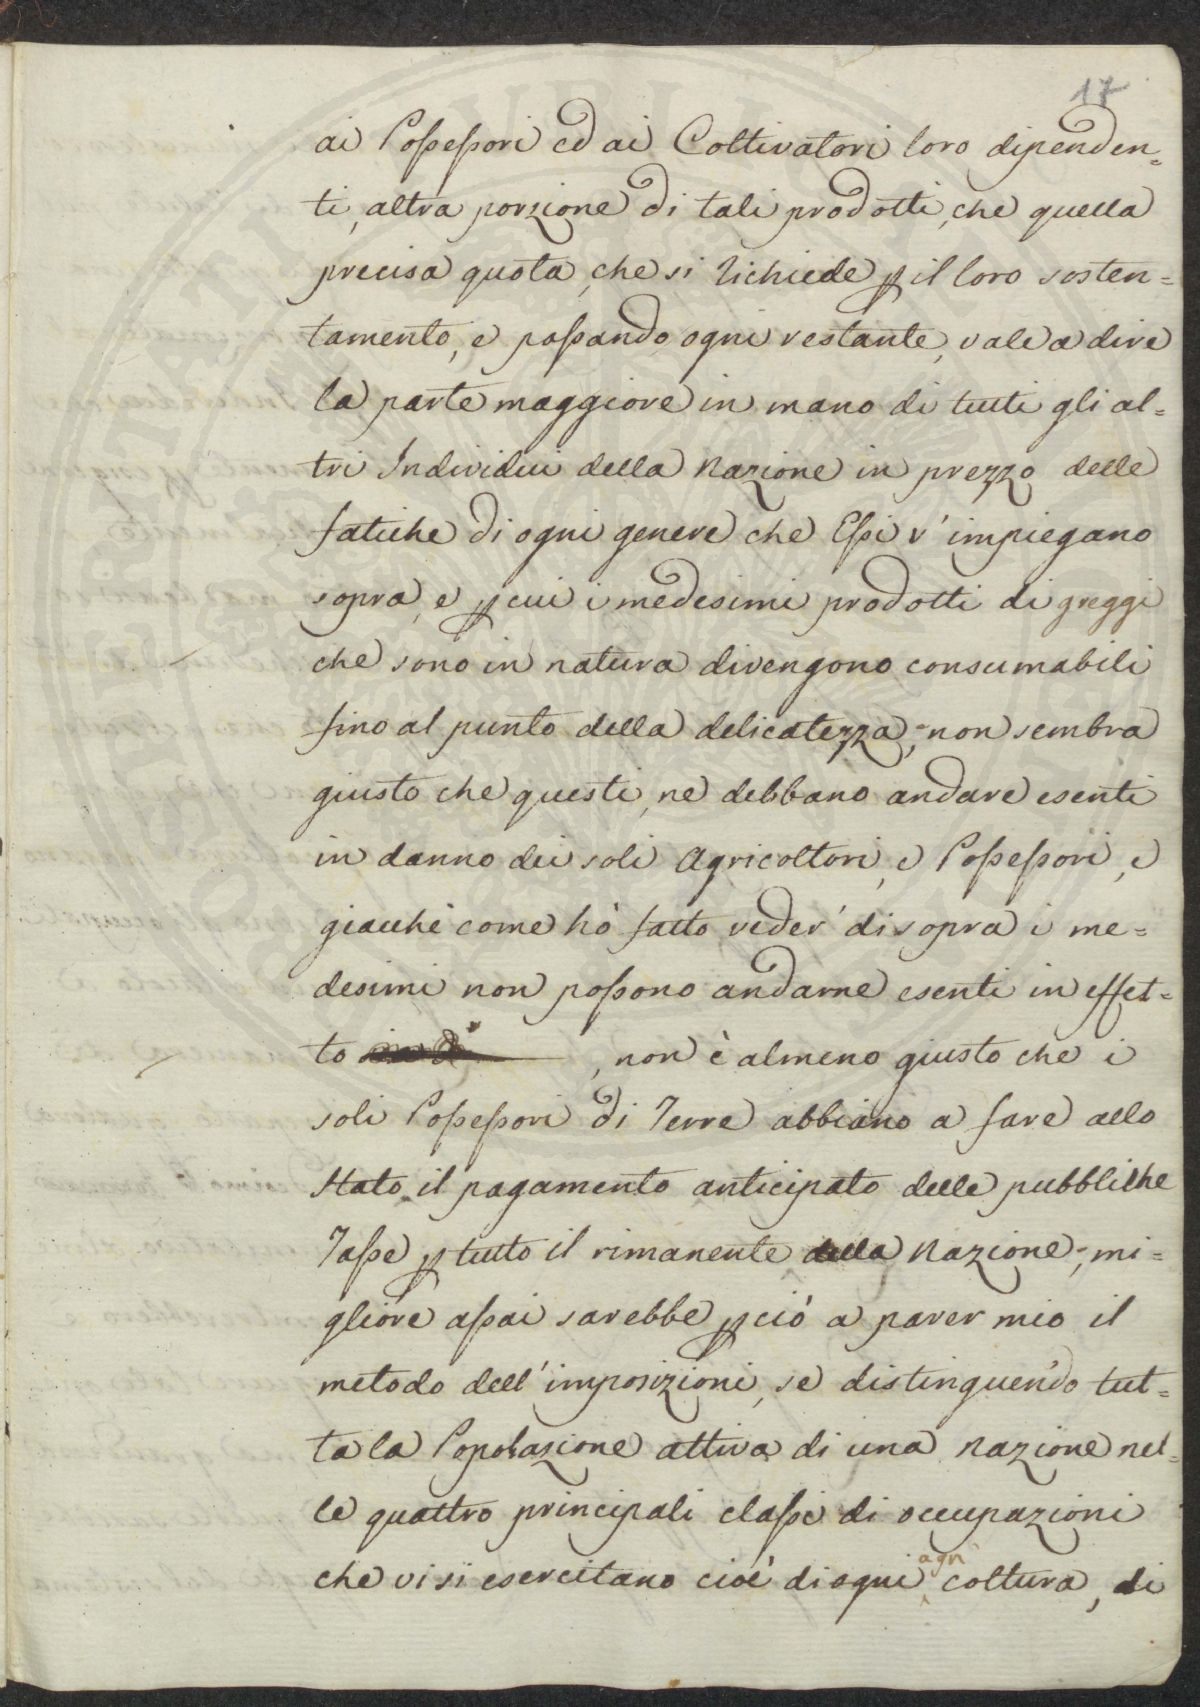 17
ai Possessori ed ai Coltivatori loro dipenden=
ti, altra porzione di tali prodotti, che quella
precisa quota, che si richiede p il loro susten=
tamento, e passando ogni restante, vale a dire
la parte maggiore in mano di tutti gli al=
tri Individui della Nazione in prezzo delle
fatiche di ogni genere che Essi v'impiegano
sopra, e p cui i medesimi prodotti di greggi
che sono in natura divengono consumabili
fino al punto della delicatezza; non sembra
giusto che questi, ne debbano andare esenti
in danno dei soli Agricoltori, e Possessori, e
giacchè come hò fatto veder' di sopra i me=
desimi non possono andarne esenti in effet=
to , non è almeno giusto che i
soli Possessori di Terre abbiano a fare allo
Stato il pagamento anticipato delle pubbliche
Tasse p tutto il rimanente della Nazione; mi=
gliore assai sarebbe pciò a parer mio il
metodo dell'imposizioni, se distinguendo tut=
ta la Popolazione attiva di una Nazione nel=
le quattro principali classi di occupazioni
che vi si esercitano cioè di ogni agri coltura, di